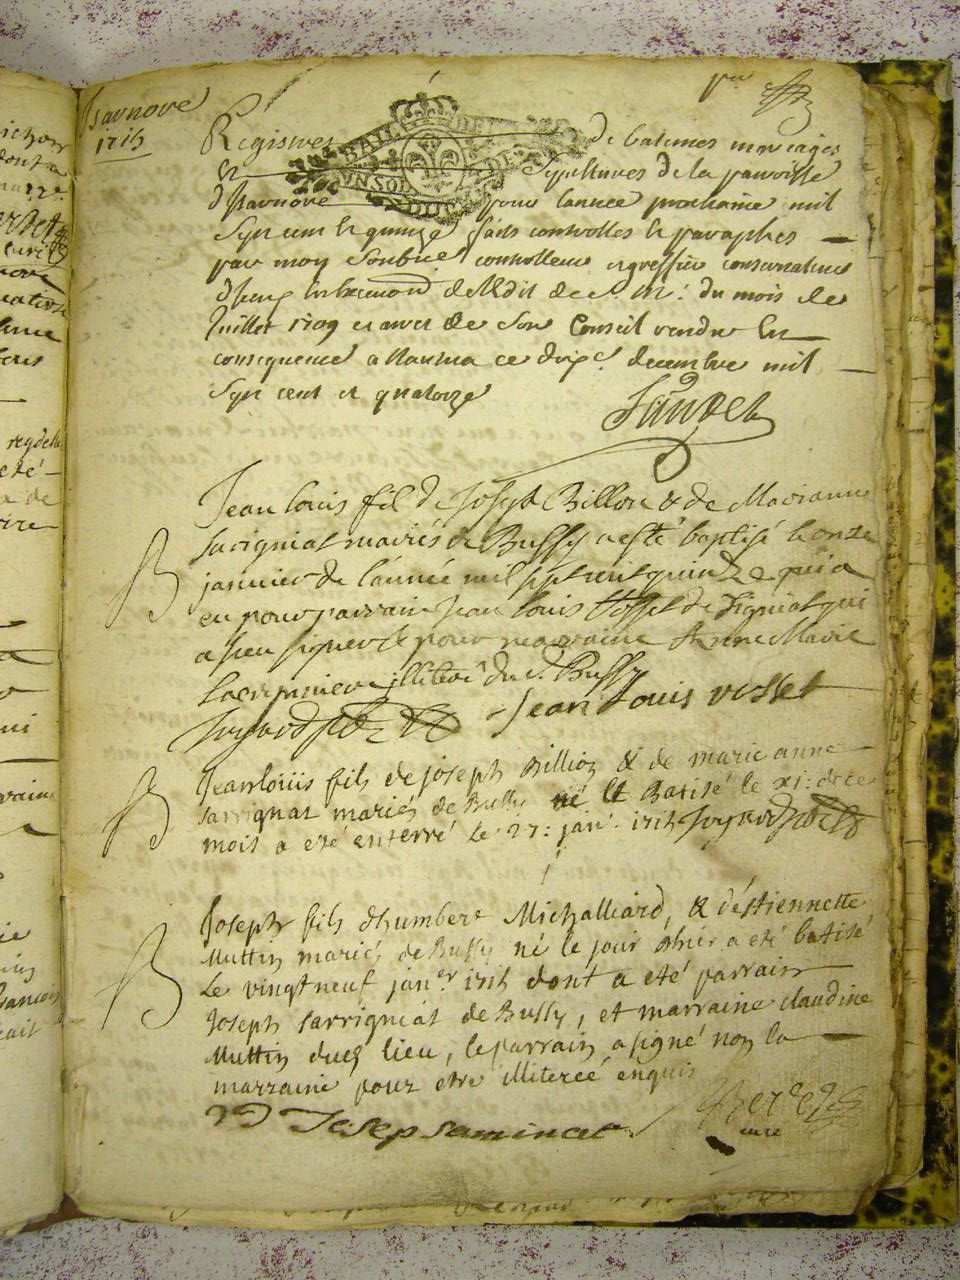 Isarnore
1715
pre
Registres de batêmes mariages
Et Sepultures de la parroisse
BAIL DE
UN SOL DES
DUC
d'Isarnore pour l'année prochaine mil
Sept cent et quinze faits controlles et paraphes
par moy Soubné controlleur et greffier conservateur
de l'Edit de S. M: du mois de
Juillet 1709 et arret de Son Conseil rendu En
consequence a Nantua ce dixe. decembre mil
Sept cent et quatorze
Jean louis fil de Joseph Billion & de Marianne
Sarrigniat mariés de Bussy a esté baptisé le onze
janvier de l'année mil sept cent quinze qui a
eu pour parrain Jean louis Vosset de Signiat qui
a sceu signer & pour marraine Anne Marie
illiterée du d. Bussy
Jean Louis vosset
B
Jean louis fils de joseph Billion & de marie anne
Sarrignat mariés de Bussy né & Batisé le XI: de ce
mois a eté enterré Le 27: janr. 1715
B
Joseph fils d'humbert Michalliard, & d'éstiennette
Muttin mariés de Bussy né le jour d'hier a eté batisé
Le vingt neuf janer 1715 dont a eté parrain
Joseph Sarrigniat de Bussy, et marraine claudine
Muttin dud. lieu, le parrain a signé non la
marraine pour etre illiterée enquis
B
curé